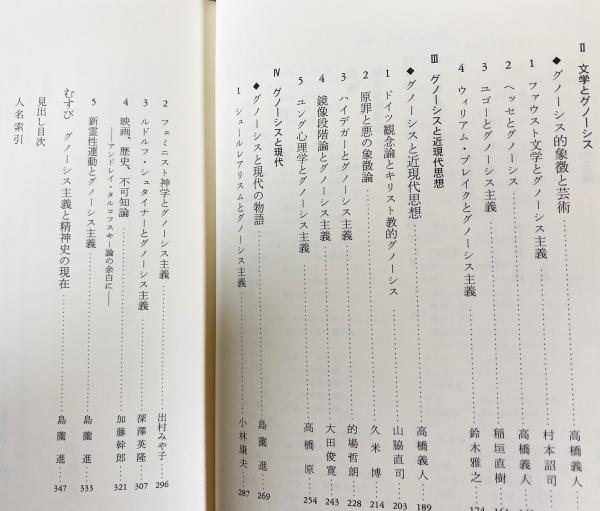 II 文学とグノーシス
◆グノーシス的象徴と芸術 高橋義人
1 ファウスト文学とグノーシス主義 村本詔司
2 ヘッセとグノーシス 高橋義人
3 ユゴーとグノーシス主義 稲垣直樹 161
4 ウィリアム・ブレイクとグノーシス主義 鈴木雅之 174
III グノーシスと近現代思想
◆グノーシスと近現代思想 高橋義人 189
1 ドイツ観念論とキリスト教的グノーシス 山脇直司 203
2 原罪と悪の象徴論 久米博 214
3 ハイデガーとグノーシス主義 的場哲朗 228
4 鏡像段階論とグノーシス主義 大田俊寛 243
5 ユング心理学とグノーシス主義 高橋原 254
IV グノーシスと現代
◆グノーシスと現代の物語 島薗進 269
1 シュールレアリスムとグノーシス主義 小林康夫 287
2 フェミニスト神学とグノーシス主義 出村みや子 296
3 ルドルフ・シュタイナーとグノーシス主義 深澤英隆 307
4 映画、歴史、不可知論 加藤幹郎 321
――アンドレイ・タルコフスキー論の余白に――
5 新霊性運動とグノーシス主義 島薗進 333
むすび グノーシス主義と精神史の現在 島薗進 347
見出し目次
人名索引